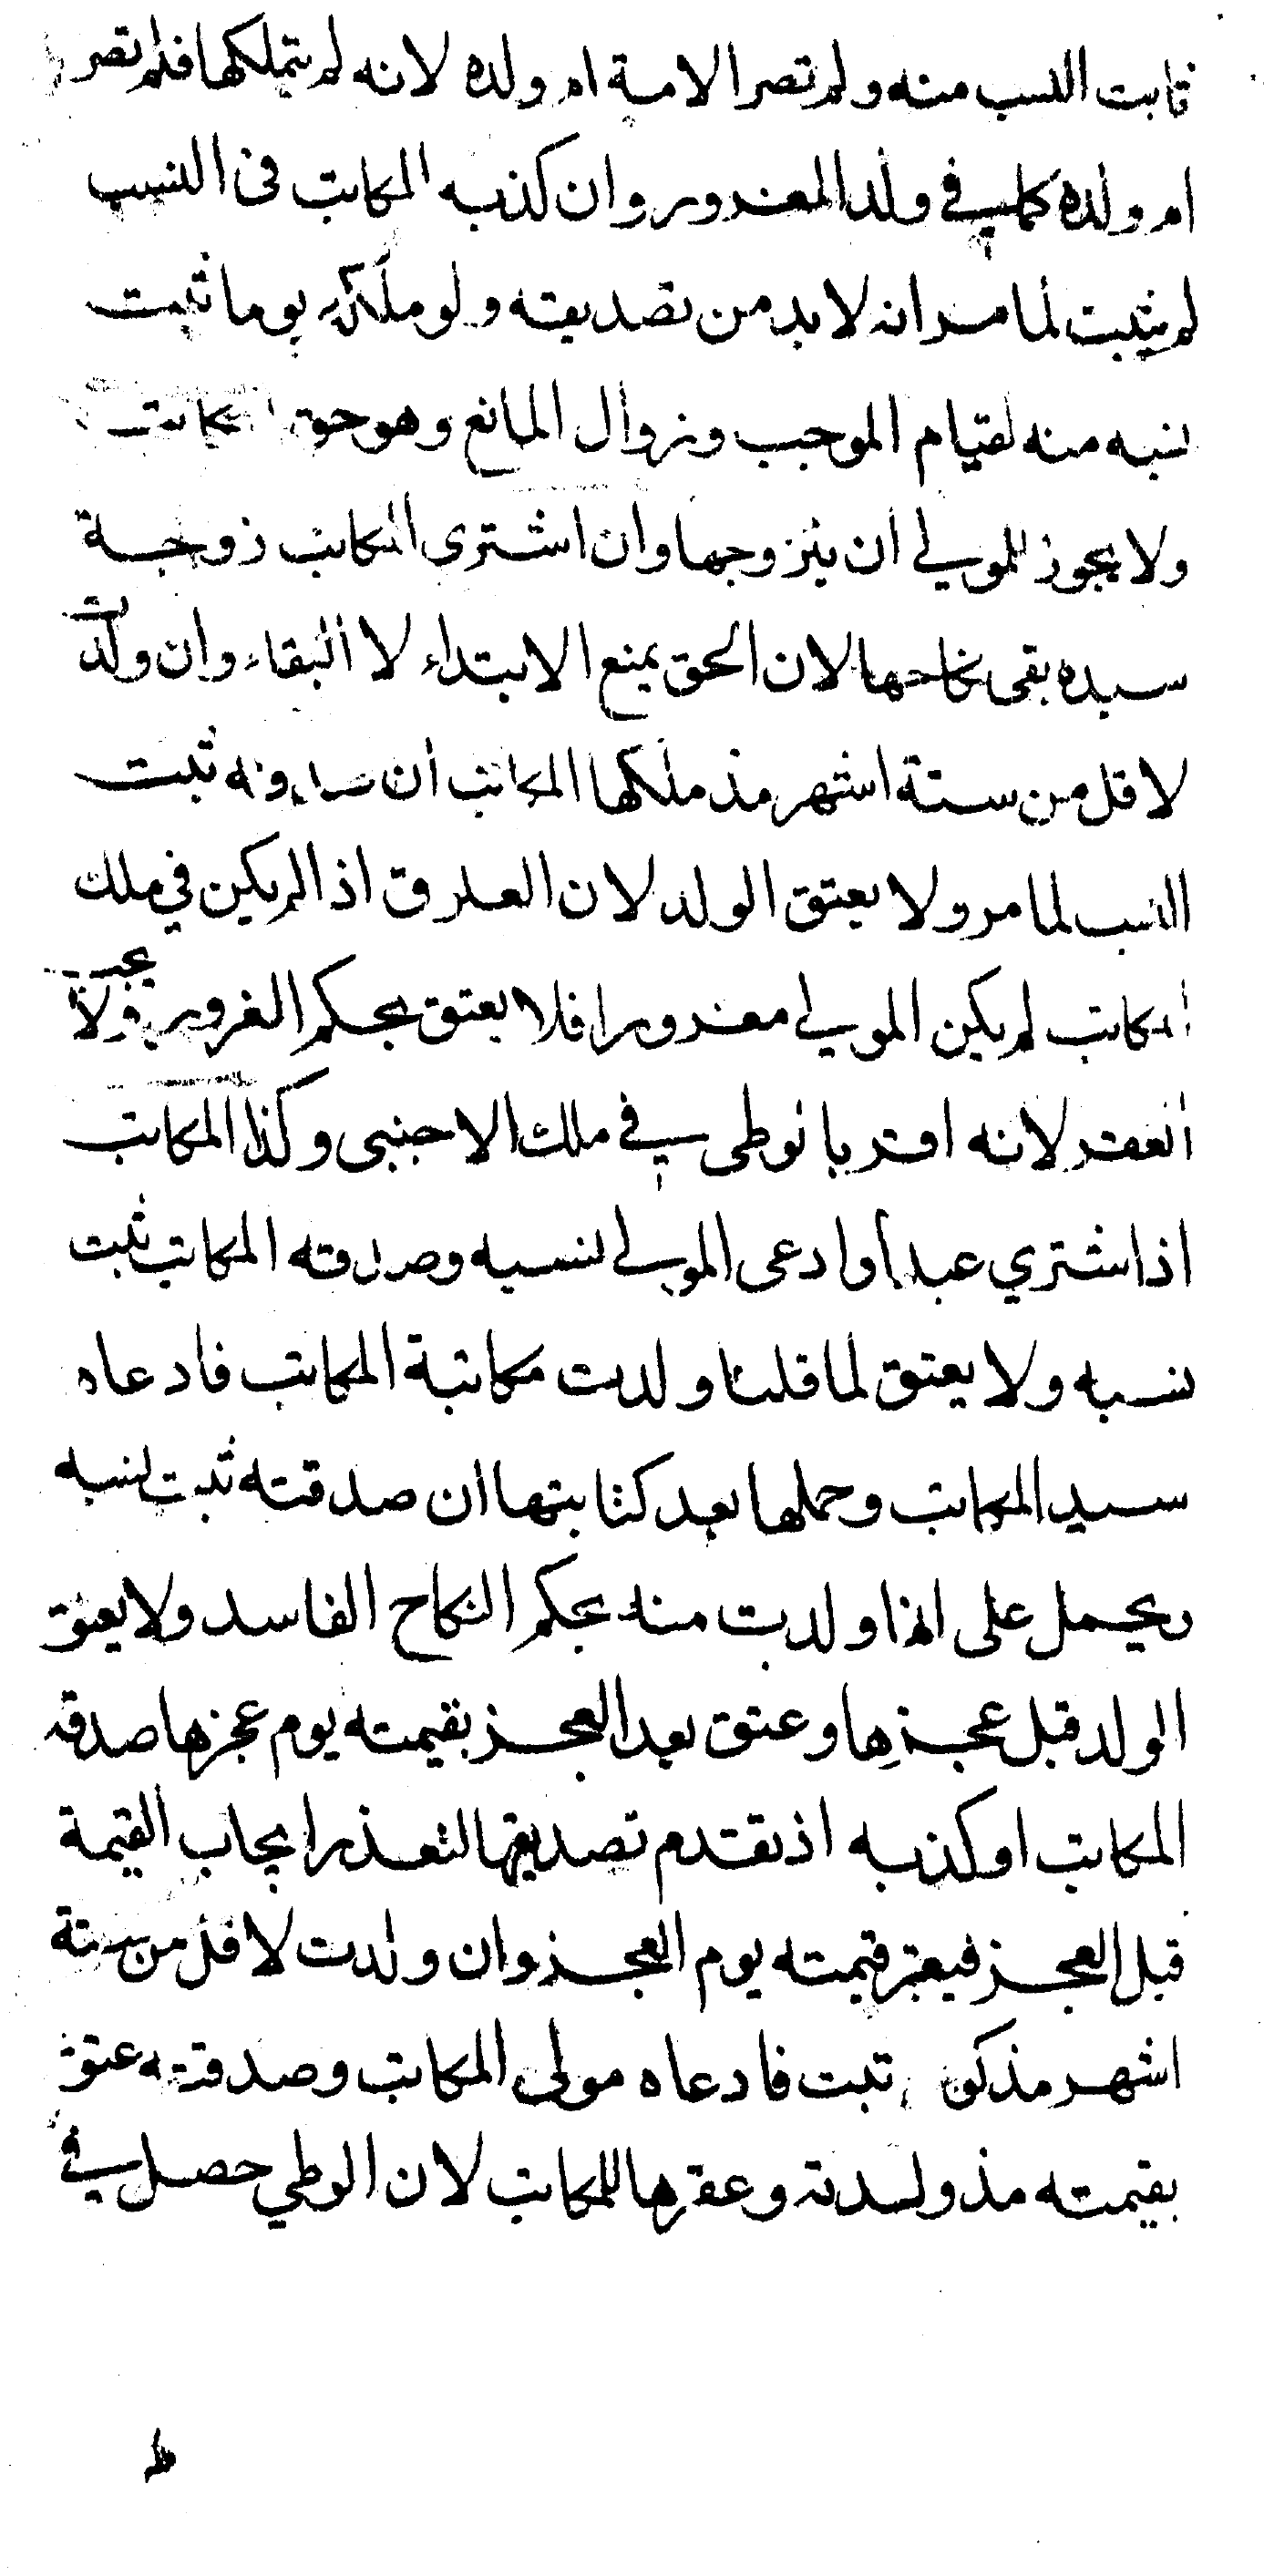 ثابت النسب منه ولم تصر الامة ام ولده لانه لم يتملكها فلم تصر
ام ولده كما في ولد المغرور وان كذبه المكاتب في النسب
لم يثبت لما مر انه لا بد من تصديقه ولو ملكه يوما ثبت
نسبه منه لقيام الموجب وزوال المانع وهو حق المكاتب
ولا يجوز للمولي ان يتزوجها وان اشترى المكاتب زوجة
سيده بقى نكاحها لان الحق يمنع الابتداء لا البقاء وان ولدت
لاقل من ستة اشهر مذ ملكها المكاتب ان صدقه ثبت
النسب لما مر ولا يعتق الولد لان العلوق اذا لم يكن في ملك
المكاتب لم يكن المولي مغرورا فلا يعتق بحكم الغرور ولا يجب
العقر لانه اقر بالوطى في ملك الاجنبى وكذا المكاتب
اذا اشتري عبدا وادعى المولي نسبه وصدقه المكاتب ثبت
نسبه ولا يعتق لما قلنا ولدت مكاتبة المكاتب فادعاه
سيد المكاتب وحملها بعد كتابتها ان صدقته ثبت نسبه
ويحمل على انها ولدت منه بحكم النكاح الفاسد ولا يعتق
الولد قبل عجزها وعتق بعد العجز بقيمته يوم عجزها صدقه
المكاتب او كذبه اذ تقدم تصديقها لتعذر ايجاب القيمة
قبل العجز فيعتبر قيمته يوم العجز وان ولدت لاقل من ستة
اشهر مذ كوتبت فادعاه مولى المكاتب وصدقته عتق
بقيمته مذ ولدته وعقرها للمكاتب لان الوطي حصل في